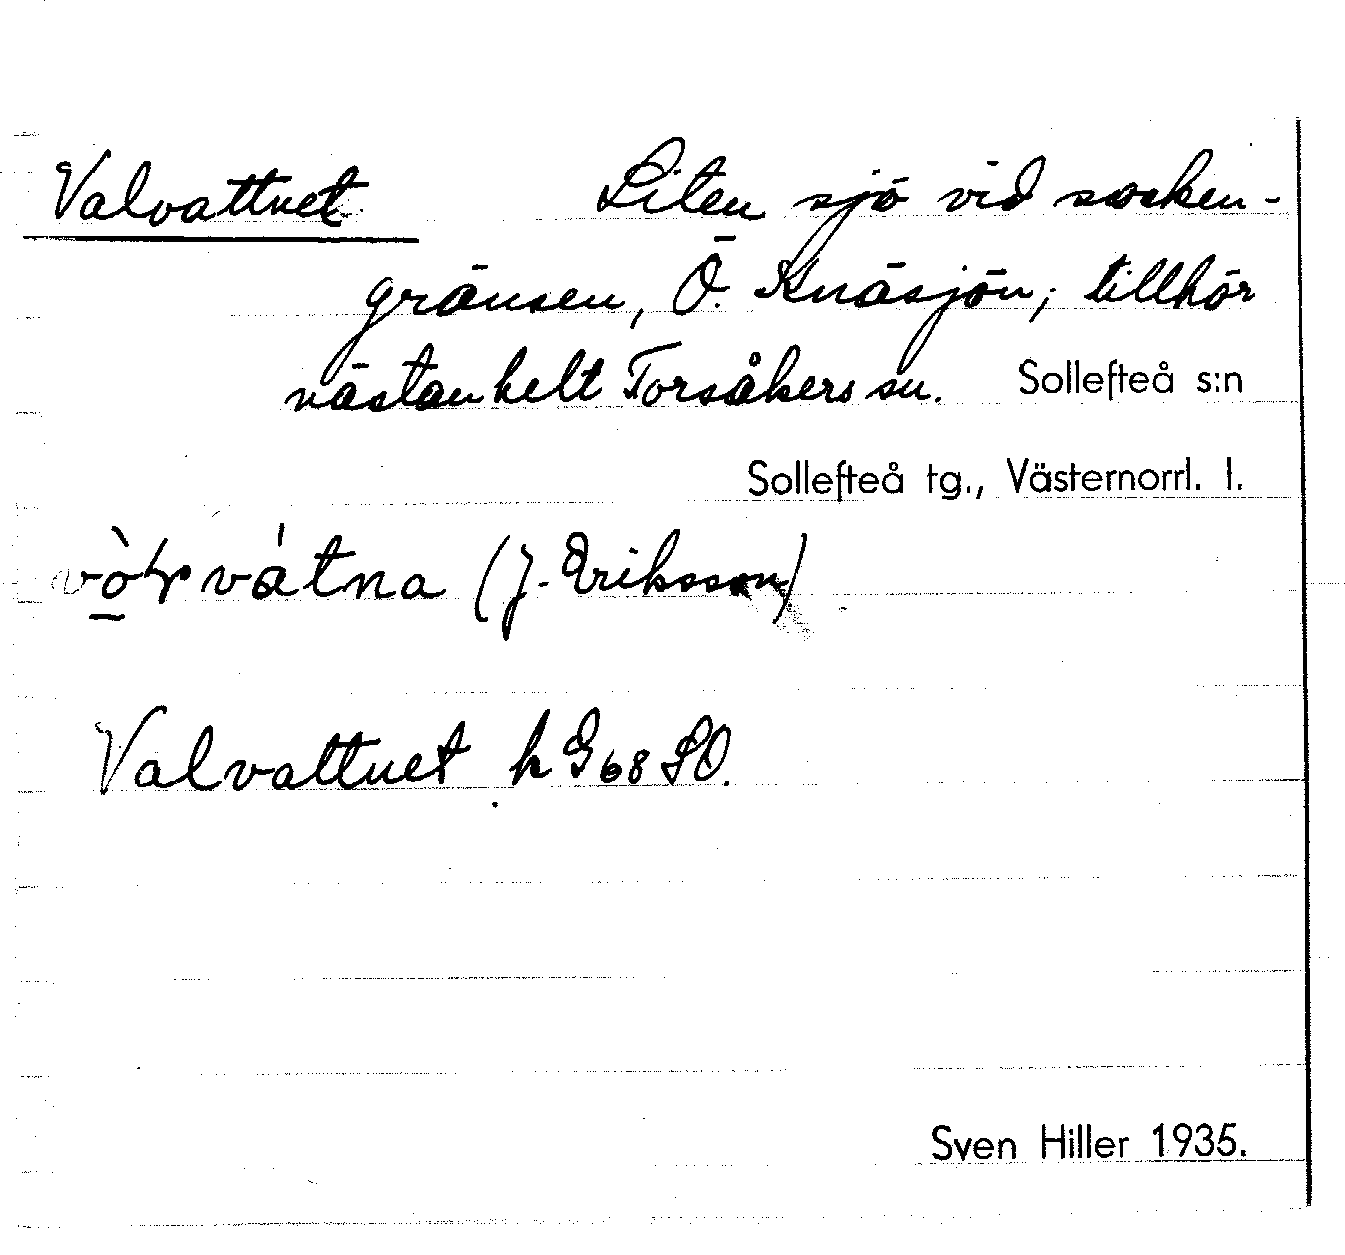 Valvattnet Liten sjö vid socken-
gränsen, Ö. Knäsjön; tillhör
nästan helt Torsåkers sn. Sollefteå s:n
Sollefteå tg., Västernorrl. l.
vátna (J. Eriksson)
Valvattnet k G 68 SO.
Sven Hiller 1935.